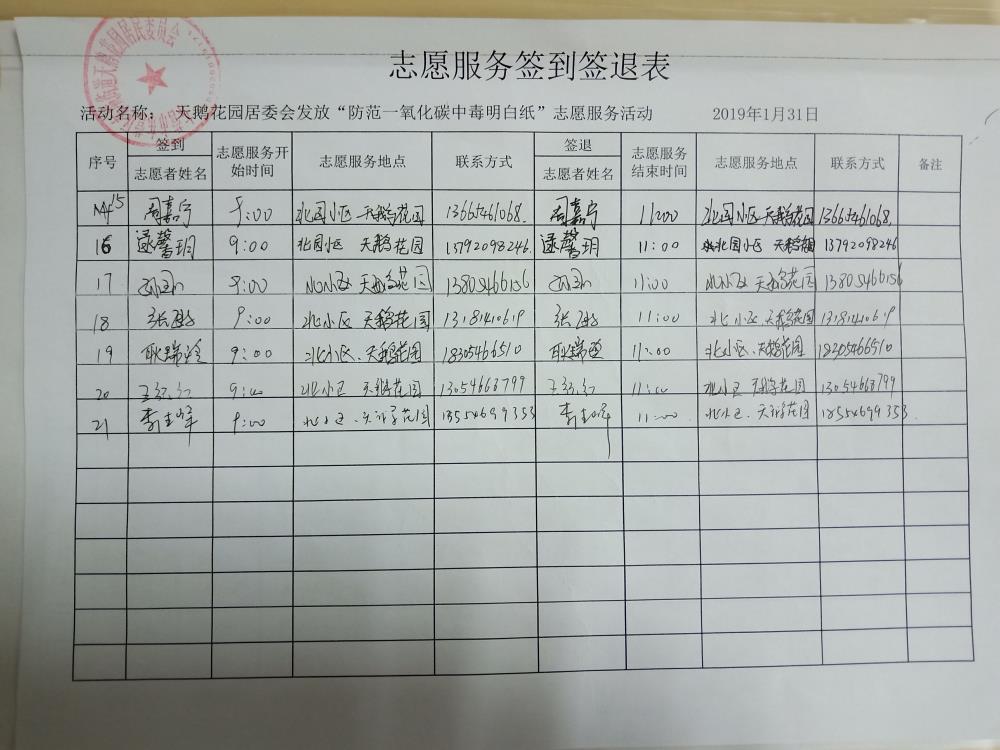 天鹅花园居民委员会
志愿服务签到签退表
活动名称： 天鹅花园居委会发放“防范一氧化碳中毒明白纸”志愿服务活动 2019年1月31日
序号 签到 志愿者姓名 志愿服务开始时间 志愿服务地点 联系方式 签退 志愿者姓名 志愿服务结束时间 志愿服务地点 联系方式 备注
15 周嘉宁 9:00 北园小区 天鹅花园 13665461068 周嘉宁 11:00 北园小区 天鹅花园 13665461068
16 逯馨玥 9:00 北园小区 天鹅花园 13792098246 逯馨玥 11:00 北园小区 天鹅花园 13792098246
17 9:00 小区 天鹅花园 13805466156 11:00 小区 天鹅花园 13805466156
18 张 9:00 北小区 天鹅花园 13181410619 张 11:00 北小区 天鹅花园 13181410619
19 耿瑞 9:00 北小区、天鹅花园 18305466510 耿瑞 11:00 北小区、天鹅花园 18305466510
20 王红红 9:00 北小区 天鹅花园 13054668799 王红红 11:00 北小区 天鹅花园 13054668799
21 李 峰 9:00 北小区、天鹅花园 18554699353 李 峰 11:00 北小区、天鹅花园 18554699353